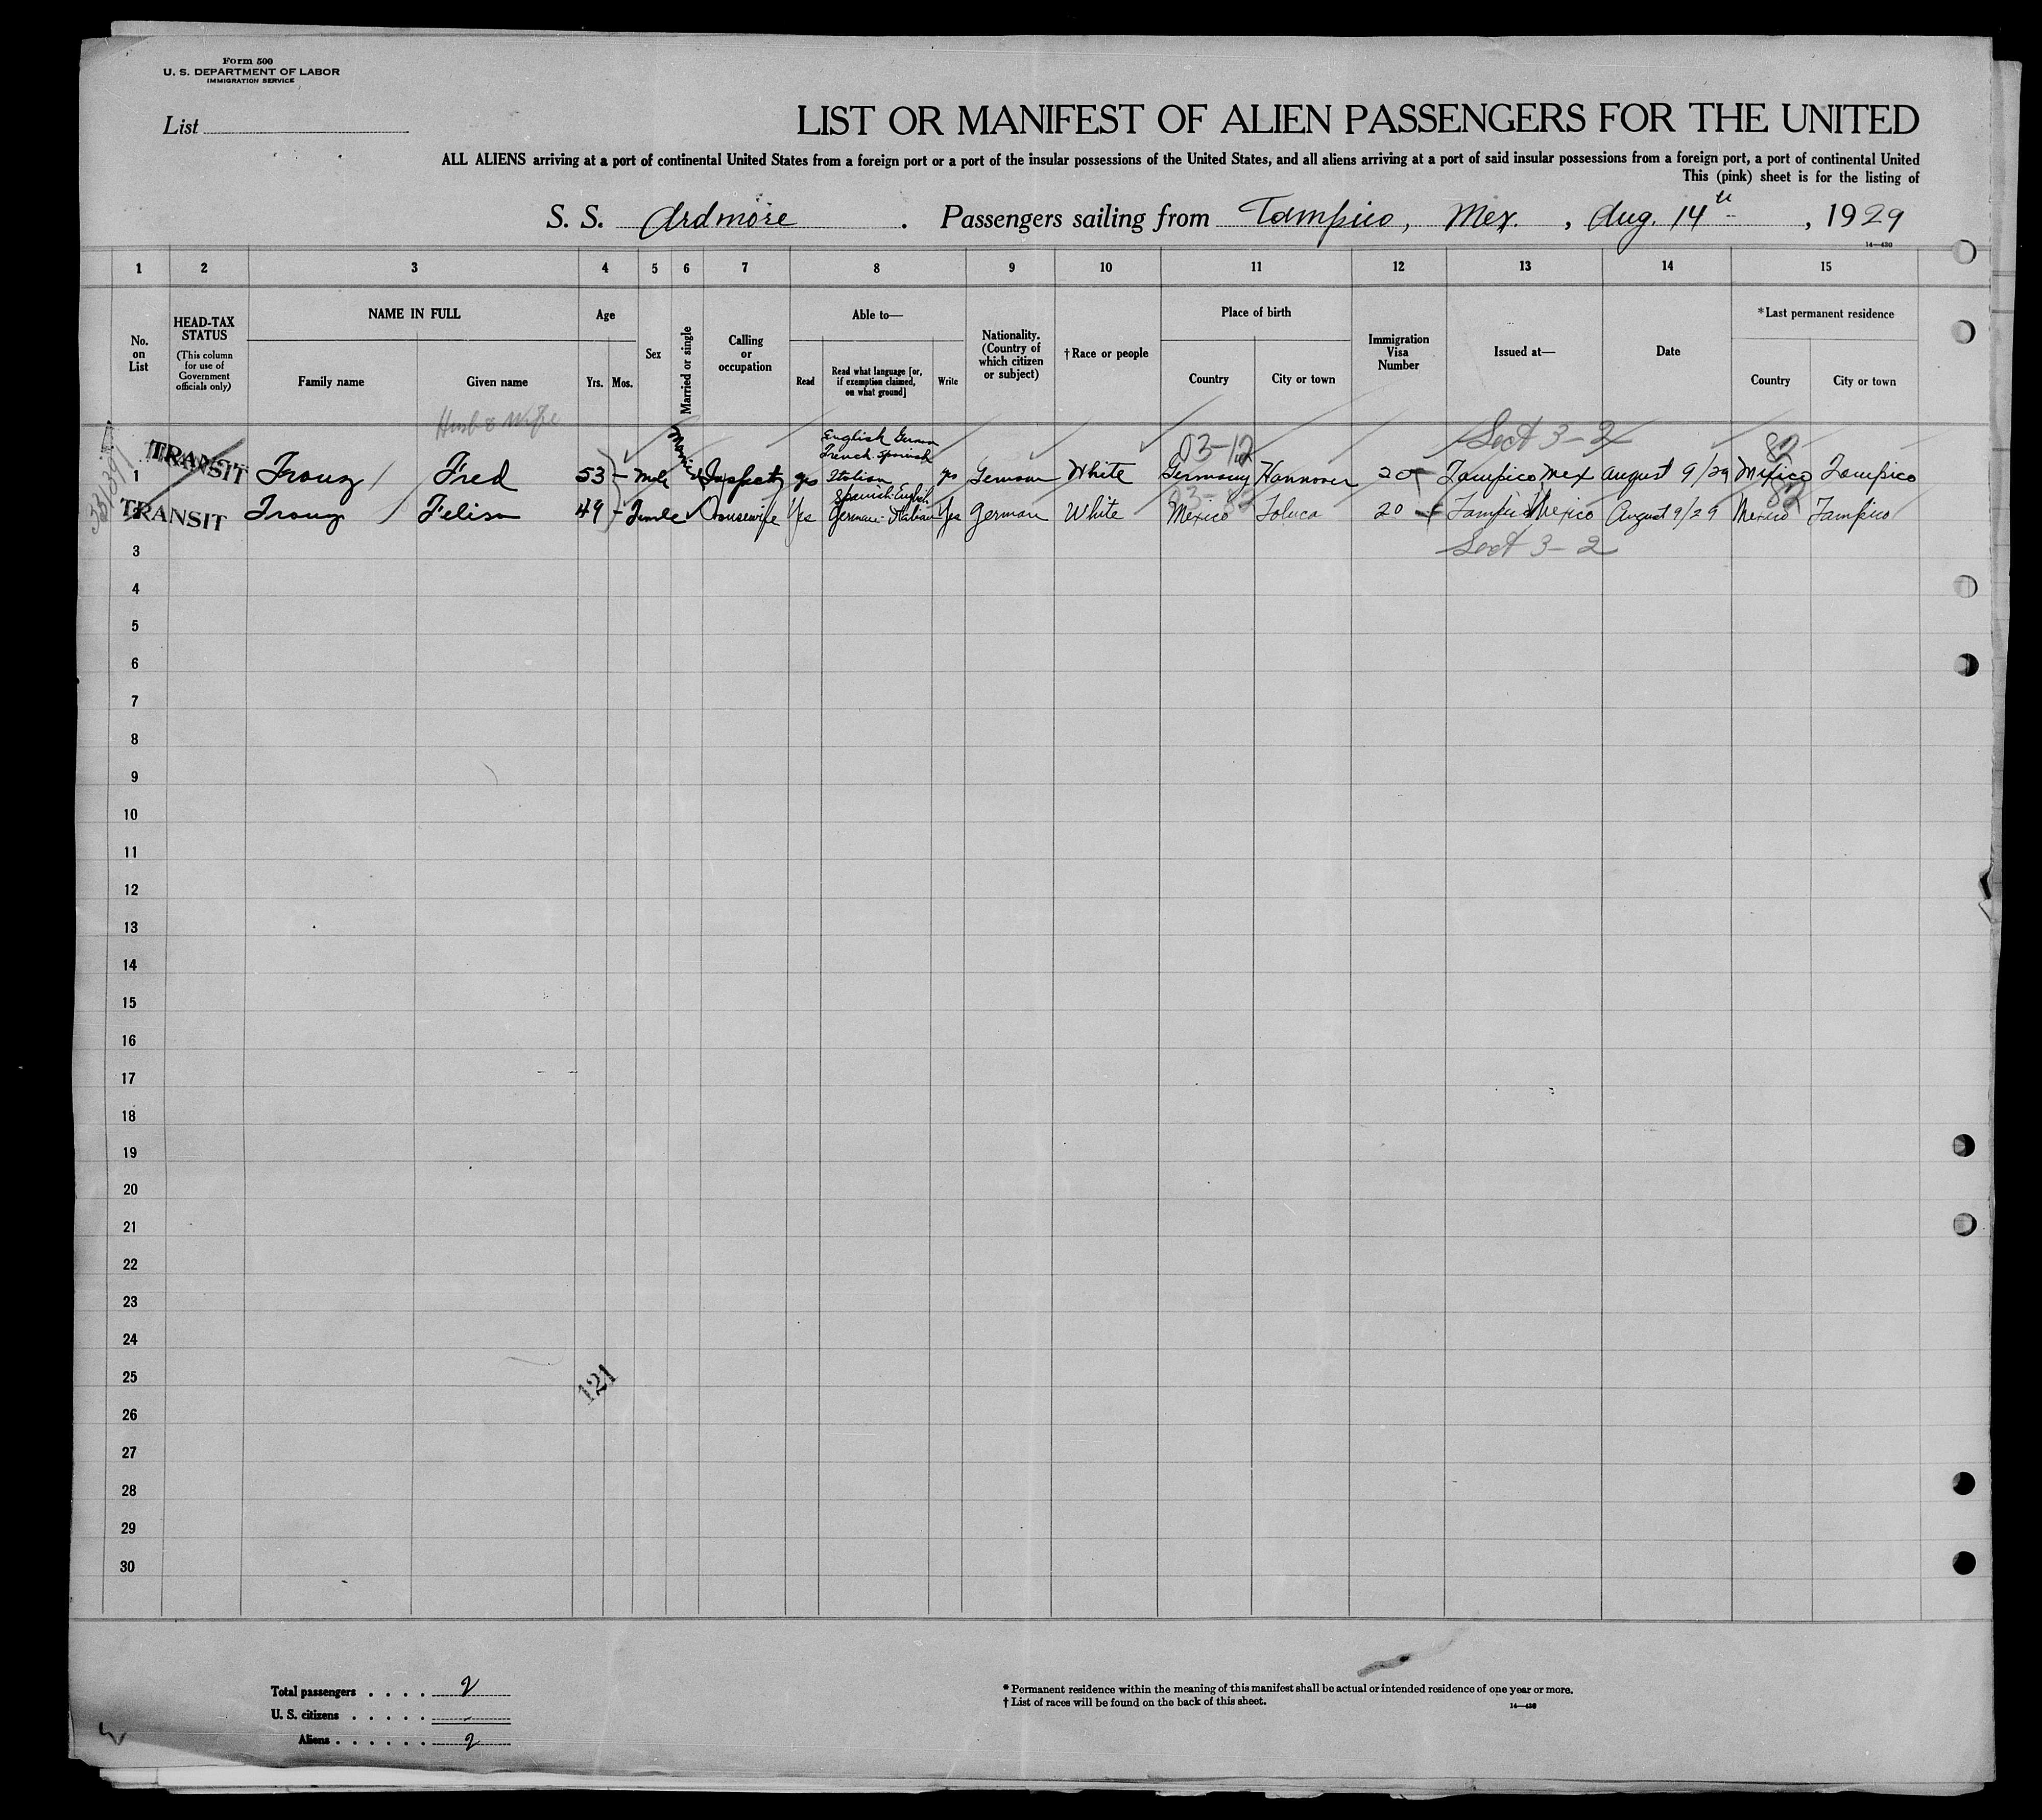 Form 500
U. S. DEPARTMENT OF LABOR
IMMIGRATION SERVICE
List
LIST OR MANIFEST OF ALIEN PASSENGERS FOR THE UNITED
ALL ALIENS arriving at a port of continental United States from a foreign port or a port of the insular possessions of the United States, and all aliens arriving at a port of said insular possessions from a foreign port, a port of continental United
This (pink) sheet is for the listing of
S. S. Ardmore . Passengers sailing from Tampico, Mex. , Aug. 14th , 1929
14—430
1 2 3 4 5 6 7 8 9 10 11 12 13 14 15
No. on List
HEAD-TAX STATUS
(This column for use of Government officials only)
NAME IN FULL
Family name Given name
Age
Yrs. Mos.
Sex
Married or single
Calling or occupation
Able to—
Read
Read what language [or, if exemption claimed, on what ground]
Write
Nationality. (Country of which citizen or subject)
†Race or people
Place of birth
Country City or town
Immigration Visa Number
Issued at—
Date
*Last permanent residence
Country City or town
Husb & Wife
Sect 3-2
03-12 82
1 TRANSIT Fred 53 - Male Married yes English German French Spanish Italian yes German White Germany Hannover 20 Tampico Mex August 9/29 Mexico Tampico
TRANSIT 49 - Female Housewife Yes Spanish-English German-Italian Yes German White Mexico Toluca 20 Tampico Mexico August 9/29 Mexico Tampico
Sect 3-2
3
4
5
6
7
8
9
10
11
12
13
14
15
16
17
18
19
20
21
22
23
24
25
121
26
27
28
29
30
Total passengers . . . . 2
U. S. citizens . . . . . -
Aliens . . . . . . 2
* Permanent residence within the meaning of this manifest shall be actual or intended residence of one year or more.
† List of races will be found on the back of this sheet.
14—430